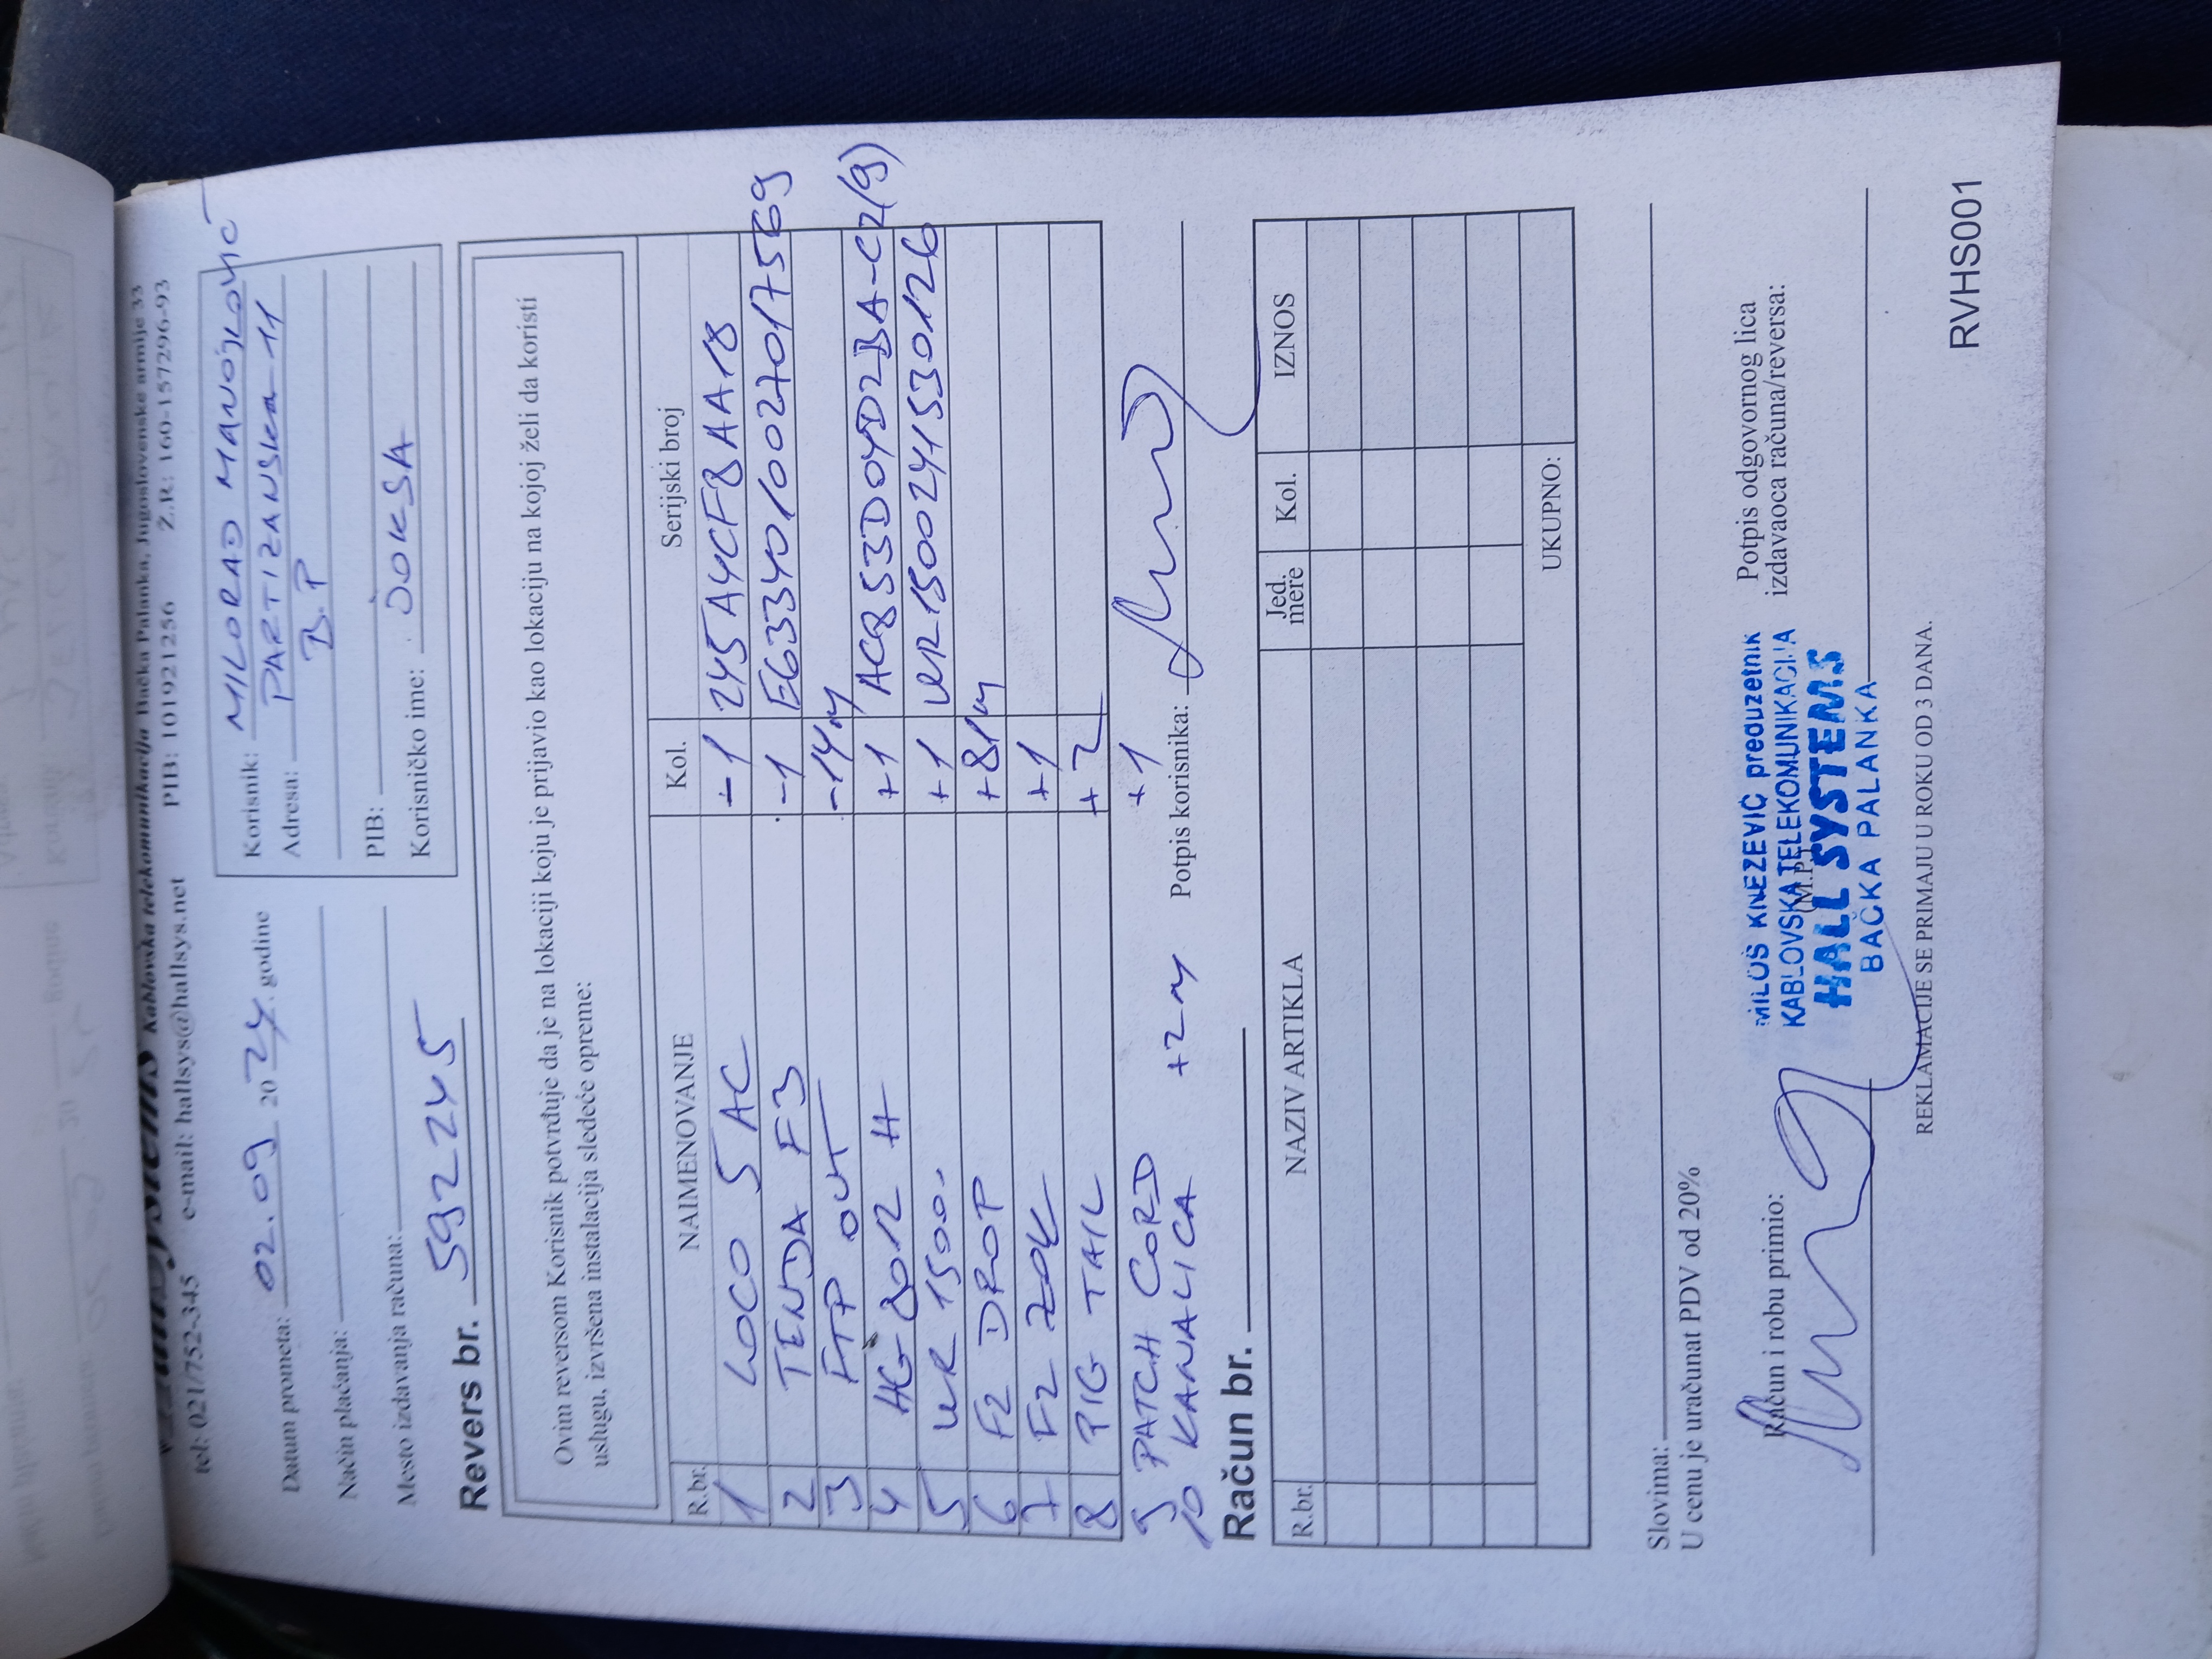 Kablovska telekomunikacija Bačka Palanka, Jugoslovenske armije 33
tel: 021/752-345 e-mail: hallsys@hallsys.net PIB: 101921256 Ž.R: 160-157296-93
Datum prometa: 02.09 2024. godine
Način plaćanja:
Mesto izdavanja računa:
Korisnik: MILORAD MANOJLOVIĆ
Adresa: PARTIZANSKA 11
B.P
PIB:
Korisničko ime: JOKSA
Revers br. 592245
Ovim reversom Korisnik potvrđuje da je na lokaciji koju je prijavio kao lokaciju na kojoj želi da koristi
uslugu, izvršena instalacija sledeće opreme:
R.br. NAIMENOVANJE Kol. Serijski broj
1 LOCO 5 AC -1 245A4CF8AA18
2 TENDA F3 -1 E6334010027017569
3 FTP OUT -14m
4 HG 801R H +1 AC853D04D2BA-C2(9)
5 WR 1500 +1 WR15002415530126
6 F2 DROP +81m
7 F2 ZOK +1
8 PIG TAIL +2
9 PATCH CORD +1
10 KANALICA +2m
Potpis korisnika:
Račun br.
R.br. NAZIV ARTIKLA Jed. mere Kol. IZNOS
UKUPNO:
Slovima:
U cenu je uračunat PDV od 20%
Račun i robu primio:
(M.P.)
MILOŠ KNEZEVIĆ preduzetnik
KABLOVSKA TELEKOMUNIKACIJA
HALL SYSTEMS
BAČKA PALANKA
Potpis odgovornog lica
izdavaoca računa/reversa:
REKLAMACIJE SE PRIMAJU U ROKU OD 3 DANA.
RVHS001